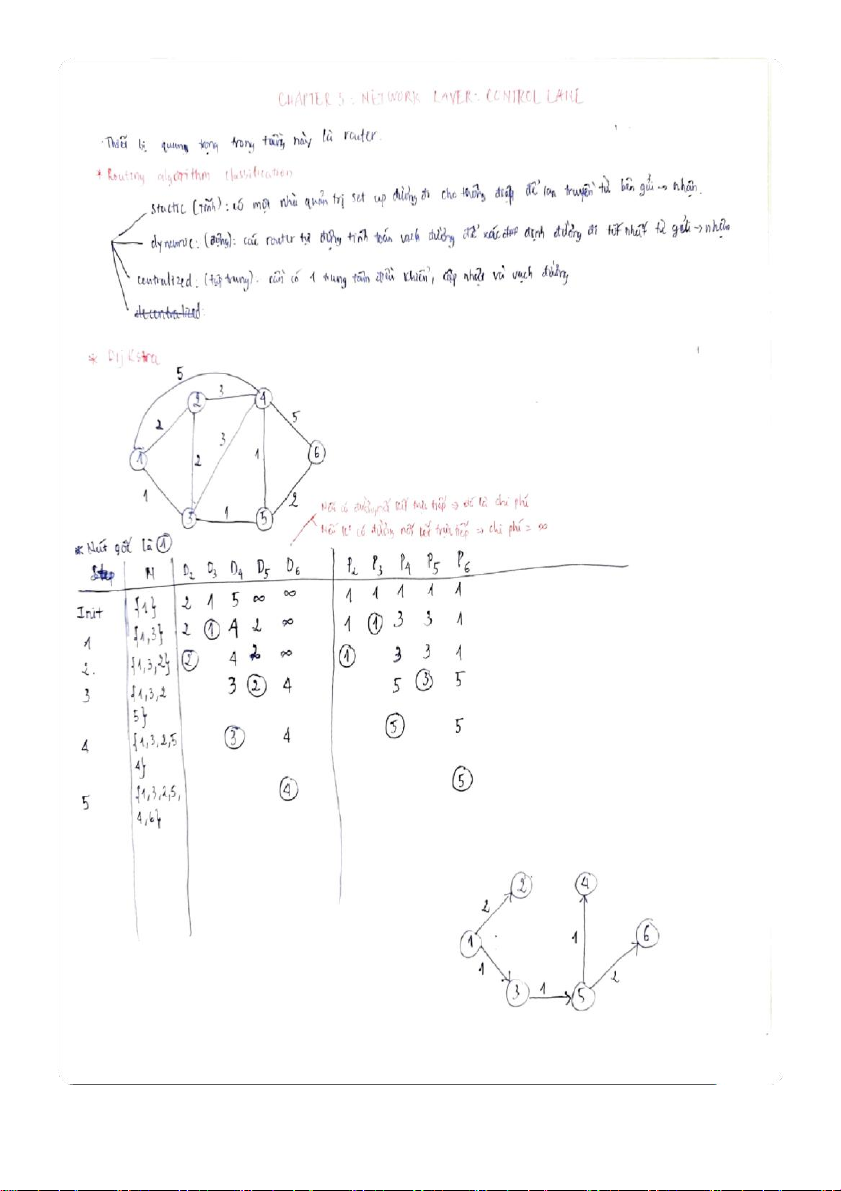 CHAPTER 5: NETWORK LAYER: CONTROL LANE
Thiết bị quan trọng trong tầng này là router.
* Routing algorithm classification
static (Tĩnh): có một nhà quản trị set up đường đi cho thông điệp để lan truyền từ bên gửi → nhận.
dynamic: (động): các router tự động tính toán vạch đường để xác định đường đi tốt nhất từ gửi → nhận
centralized: (tập trung). cần có 1 trung tâm điều khiển, cập nhật và vạch đường
decentralized:
* Dijkstra
5
2 3 4
2 3 5
1 2 1 6
1 2
3 1 5
Nếu có đường nối kết trực tiếp → đó là chi phí
Nếu ko có đường nối kết trực tiếp → chi phí = ∞
* Nút gốc là 1
Step N D2 D3 D4 D5 D6 P2 P3 P4 P5 P6
Init {1} 2 1 5 ∞ ∞ 1 1 1 1 1
1 {1,3} 2 1 4 2 ∞ 1 1 3 3 1
2. {1,3,2} 2 4 2 ∞ 1 3 3 1
3 {1,3,2 3 2 4 5 3 5
5}
4 {1,3,2,5 3 4 5 5
4}
5 {1,3,2,5, 4 5
4,6}
2 4
2
1 1 6
1 2
3 1 5